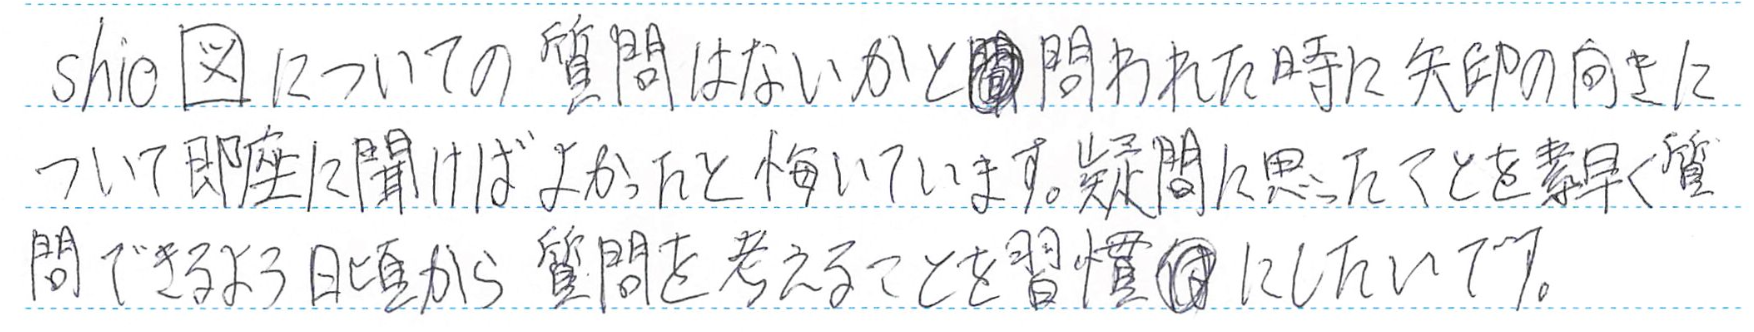 shio図についての質問はないかと問われた時に矢印の向きに
ついて即座に聞けばよかったと悔いています。疑問に思ったことを素早く質
問できるよう日頃から質問を考えることを習慣にしたいです。